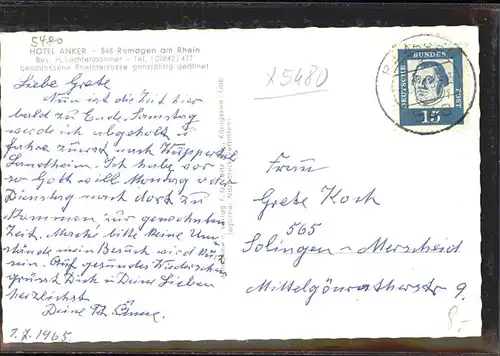 5480
HOTEL ANKER - 548 Remagen am Rhein
Bes. H. Lechtenböhmer - Tel. (02642) 477
geschlossene Rheinterrasse ganzjährig geöffnet
x5480
Liebe Grete
Nun ist die Zeit hier
bald zu Ende. Samstag
werde ich abgeholt u
fahre zuerst nach Wuppertal
Landheim. Ich habe vor
so Gott will Montag oder
Dienstag nach dort zu
kommen zur gewohnten
Zeit. Mache bitte Deine Um-
stände mein Besuch wird kurz
sein. Auf gesundes Wiedersehn
grüsst Dich u Deine Lieben
herzlichst
Deine
1.7.1965
DEUTSCHE
BUNDES
POST
15
Frau
Grete Koch
565
Solingen - Merscheid
Mittelgönratherstr 9.